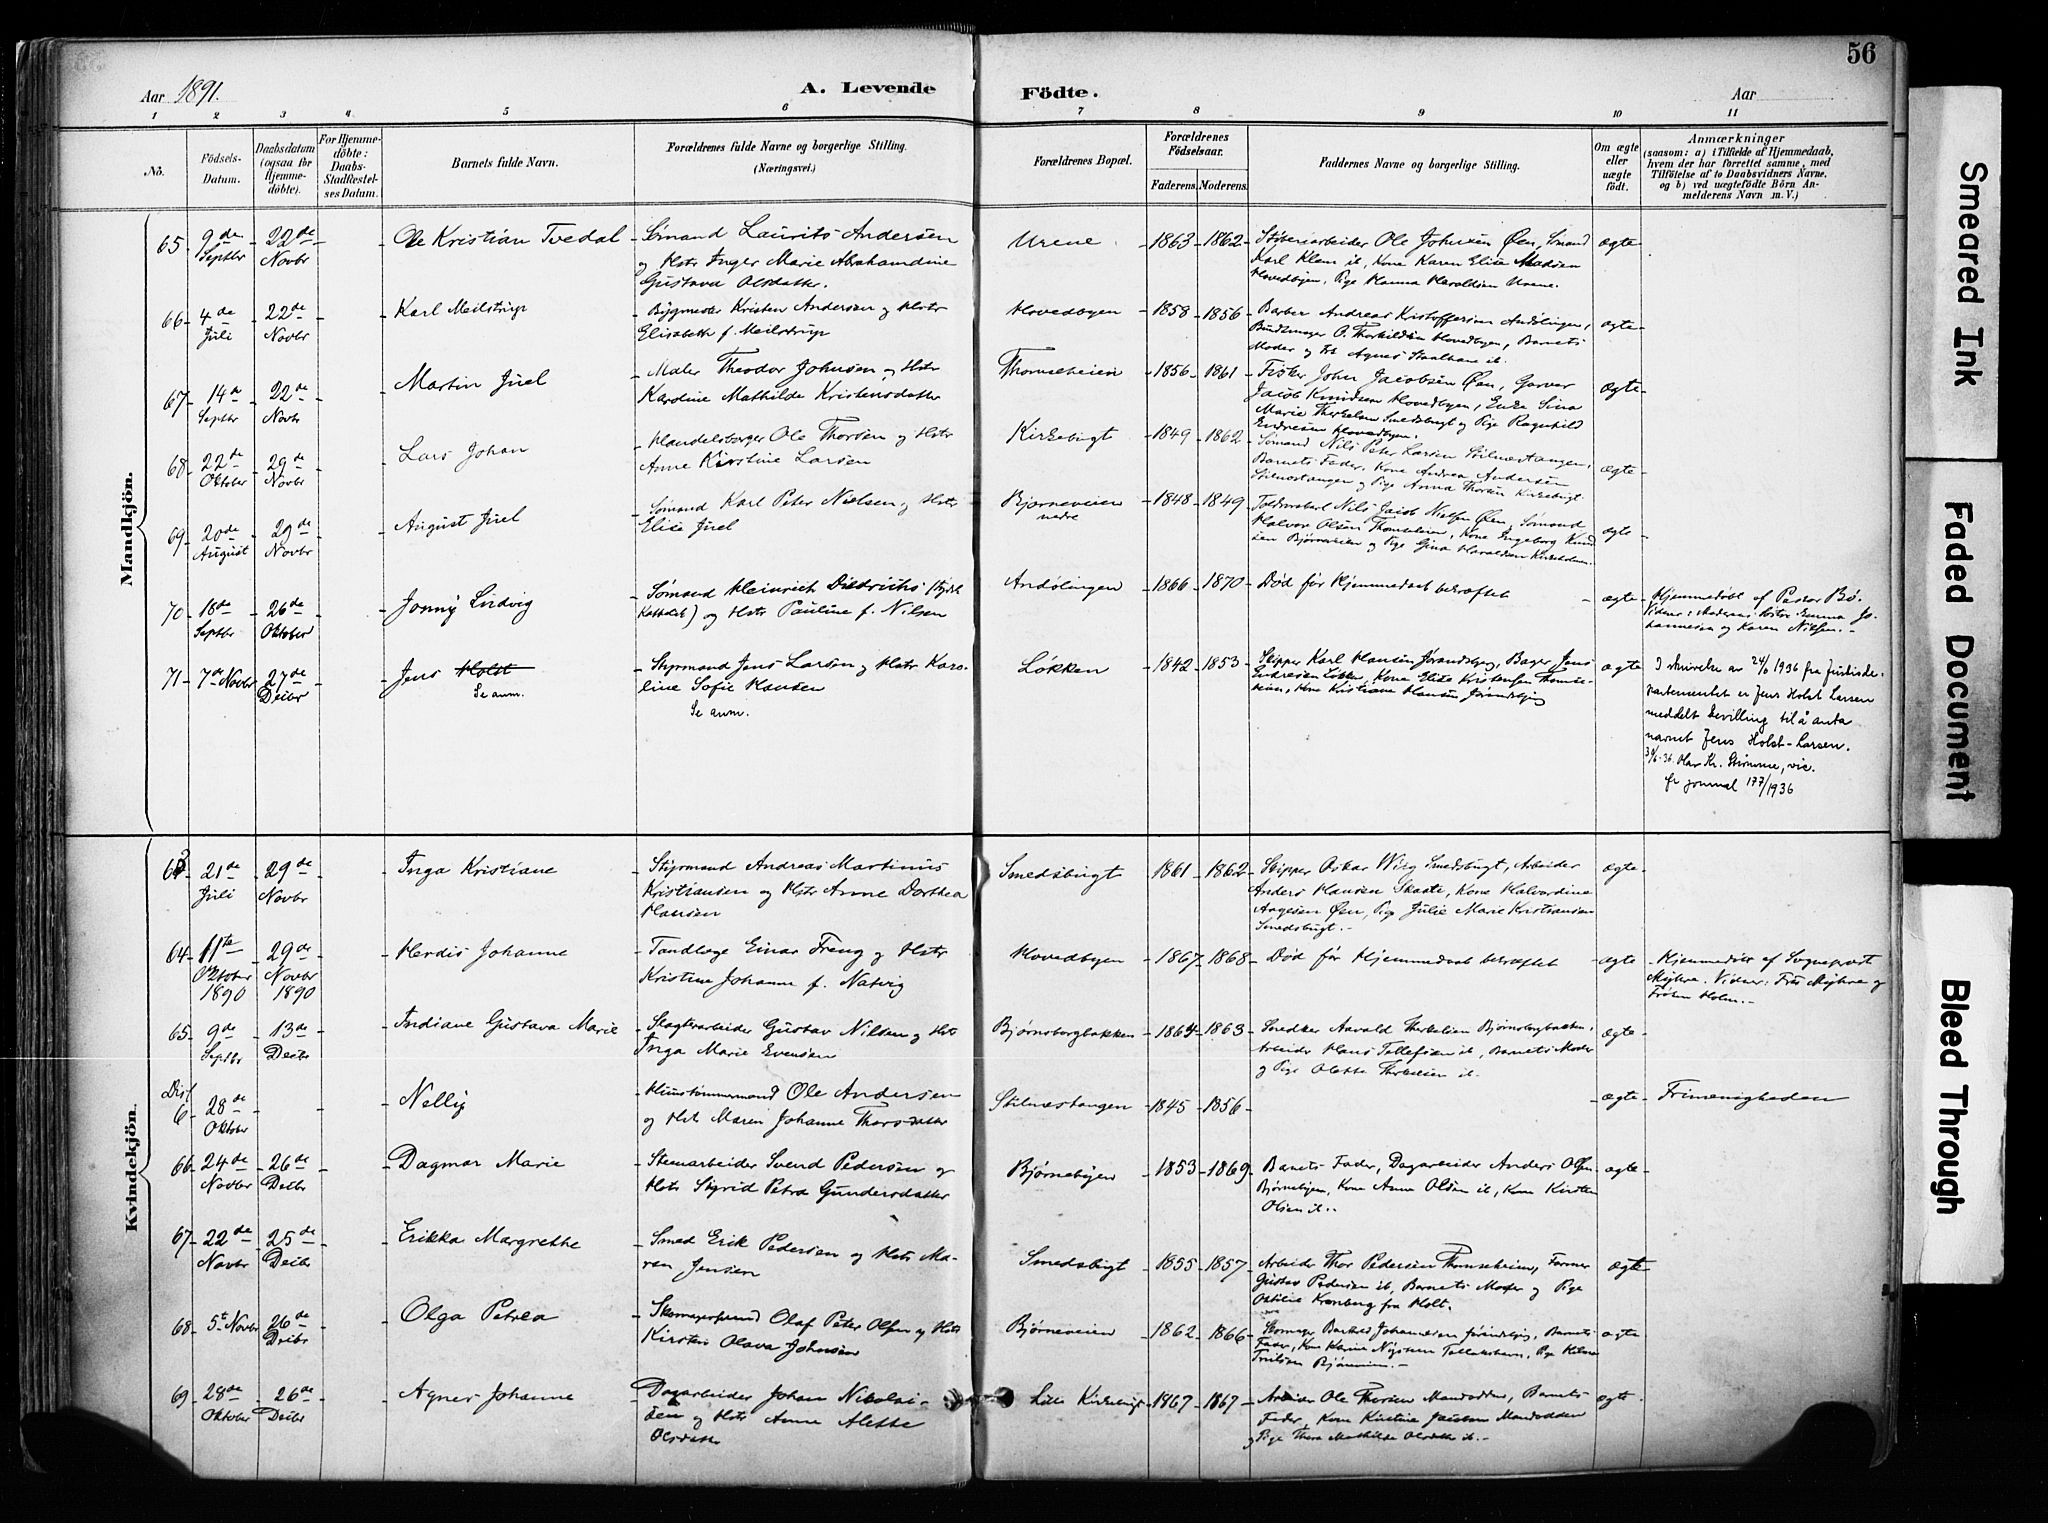 56
Aar 1891.
A. Levende Födte.
Aar
1 2 3 4 5 6 7 8 9 10 11
Nö.
Födsels-Datum.
Daabsdatum (ogsaa for Hjemmedöbte).
For Hjemmedöbte: Daabs-Stadfæstelses Datum.
Barnets fulde Navn.
Forældrenes fulde Navne og borgerlige Stilling.
(Næringsvei.)
Forældrenes Bopæl.
Forældrenes Födselsaar.
Faderens. Moderens.
Faddernes Navne og borgerlige Stilling.
Om ægte eller uægte födt.
Anmærkninger
(saasom: a) i Tilfælde af Hjemmedaab, hvem der har forrettet samme, med Tilföielse af to Daabsvidners Navne, og b) ved uægtefödte Börn Anmelderens Navn m. V.)
Mandkjön.
65 9de Septbr 22de Novbr Ole Kristian Tvedal Sømand Laurits Andersen og Hstr Inger Marie Abrahamdine Gustava Olsdatter. Urene 1863 1862 Støberiarbeider Ole Johnsen Øen, Sømand Karl Klem ib, Kone Karen Elise Madsen Hovedbyen, Pige Hanna Haroldsen Urene. ægte
66 4de Juli 22de Novbr Karl Meilstrup Bygmester Kristen Andersen og Hstr Elisabeth f. Meilstrup Hovedbyen 1858 1856 Barber Andreas Kristoffersen Andølingen, Bundtmager O. Thorkildsen Hovedbyen, Barnets Moder og Agnes Staalhane ib. ægte
67 14de Septbr 22de Novbr Martin Juel Maler Theodor Johnsen og Hstr Karoline Mathilde Kristensdatter Thomseheien 1856 1861 Fisker John Jacobsen Øen, Garver Jacob Knudsen Hovedbyen, Enke Sina Marie Therkelsen Smedsbugt og Pige Ragnhild Endresen Hovedbyen. ægte
68 22de Oktober 29de Novbr Lars Johan Handelsborger Ole Thorsen og Hstr Anne Kirstine Larsen Kirkebugt 1849 1862 Sømand Nils Peter Larsen Stilnestangen, Barnets Fader, Kone Andrea Andersen Stilnestangen og Pige Anna Thorsen Kirkebugt. ægte
69 20de August 29de Novbr August Juel Sømand Karl Peter Nielsen og Hstr Elise Juel Bjørneveien nedre 1848 1849 Nils Jacob Nielsen Øen, Sømand Halvor Olsen Thomseheien, Kone Ingeborg Knudsen Bjørneveien og Pige Gina Haroldsen ægte
70 18de Septbr 26de Oktober Jonny Ludvig Sømand Heinrich Diedrichs og Hstr Pauline f. Nilsen Andølingen 1866 1870 Død før Hjemmedaab bekræftet ægte Hjemmedøbt af Pastor Bø. Vidner: Moderens Søster Emma Johannesen og Karen Nilsen.
71 7de Novbr 27de Decbr Jens Holst Se anm. Styrmand Jens Larsen og Hstr Karoline Sofie Hansen Se anm. Løkken 1842 1853 Skipper Karl Hansen Jørandsbjg, Bager Jens Endresen Løkken, Kone Elise Kristensen Thomseheien, Kone Kristiane Hansen Jørandsbjg ægte I skrivelse av 24/6 1936 fra Justisdepartementet er Jens Holst Larsen meddelt bevilling til å anta navnet Jens Holst-Larsen. 30/6-36. Olav Kr. Strømme, vic. jfr journal 177/1936
Kvindekjön.
63 21de Juli 29de Novbr Inga Kristiane Styrmand Andreas Martinus Kristiansen og Hstr Anne Dorthea Hansen Smedsbugt 1861 1862 Skipper Oskar Wiig Smedsbugt, Arbeider Anders Hansen Skaate, Kone Halvardine Aagesen Øen, Pige Julie Marie Kristiansen Smedsbugt. ægte
64 11te Oktober 1890 29de Novbr 1890 Herdis Johanne Tandlæge Einar Freng og Hstr Kristine Johanne f. Natvig Hovedbyen 1867 1868 Død før Hjemmedaab bekræftet ægte Hjemmedøbt af Sognepræst Myhre. Vidner: Frue Myhre og Frøken Holm.
65 9de Septbr 13de Decbr Indiane Gustava Marie Slagteriarbeider Gustav Nilsen og Hstr Inga Marie Evensen Bjørnsborgbakken 1864 1863 Snedker Aavald Therkelsen Bjørnsborgbakken, Arbeider Hans Tellefsen ib, Barnets Moder og Pige Olette Therkelsen ib. ægte
Diss 6 28de Oktober Nelly Huustømmermand Ole Andersen og Hstr Maren Johanne Thorsdatter Stilnestangen 1845 1856 ægte Frimenigheden
66 24de Novbr 26de Decbr Dagmar Marie Stenarbeider Svend Pedersen og Hstr Sigrid Petra Gundersdatter Bjørnebyen 1853 1869 Barnets Fader, Dagarbeider Anders Olsen Bjørnebyen, Kone Anne Olsen ib, Kone Kirsten Olsen ib. ægte
67 22de Novbr 25de Decbr Erikka Margrethe Smed Erik Pedersen og Hstr Maren Jensen Smedsbugt 1855 1857 Arbeider Thor Pedersen Thomseheien, Former Gustav Pedersen ib, Barnets Moder og Pige Othilie Kronberg fra Holt. ægte
68 5te Novbr 26de Decbr Olga Petrea Skomagersvend Olaf Peter Olsen og Hstr Kirsten Olava Johnsen Bjørneveien 1862 1866 Skomager Barthel Johannesen Jørandsbjg, Barnets Fader, Kone Karine Tollakshavn, Pige Hilma Bjørneveien. ægte
69 28de Oktober 26de Decbr Agnes Johanne Dagarbeider Johan Nikolaisen og Hstr Anne Alette Olsdatter Lille Kirkebugt 1867 1867 Arbeider Ole Thorsen Mandodden, Barnets Fader, Kone Kirstine Jacobsen Mandodden og Pige Thora Mathilde Olsdatter ib. ægte
Smeared Ink
Faded Document
Bleed Through